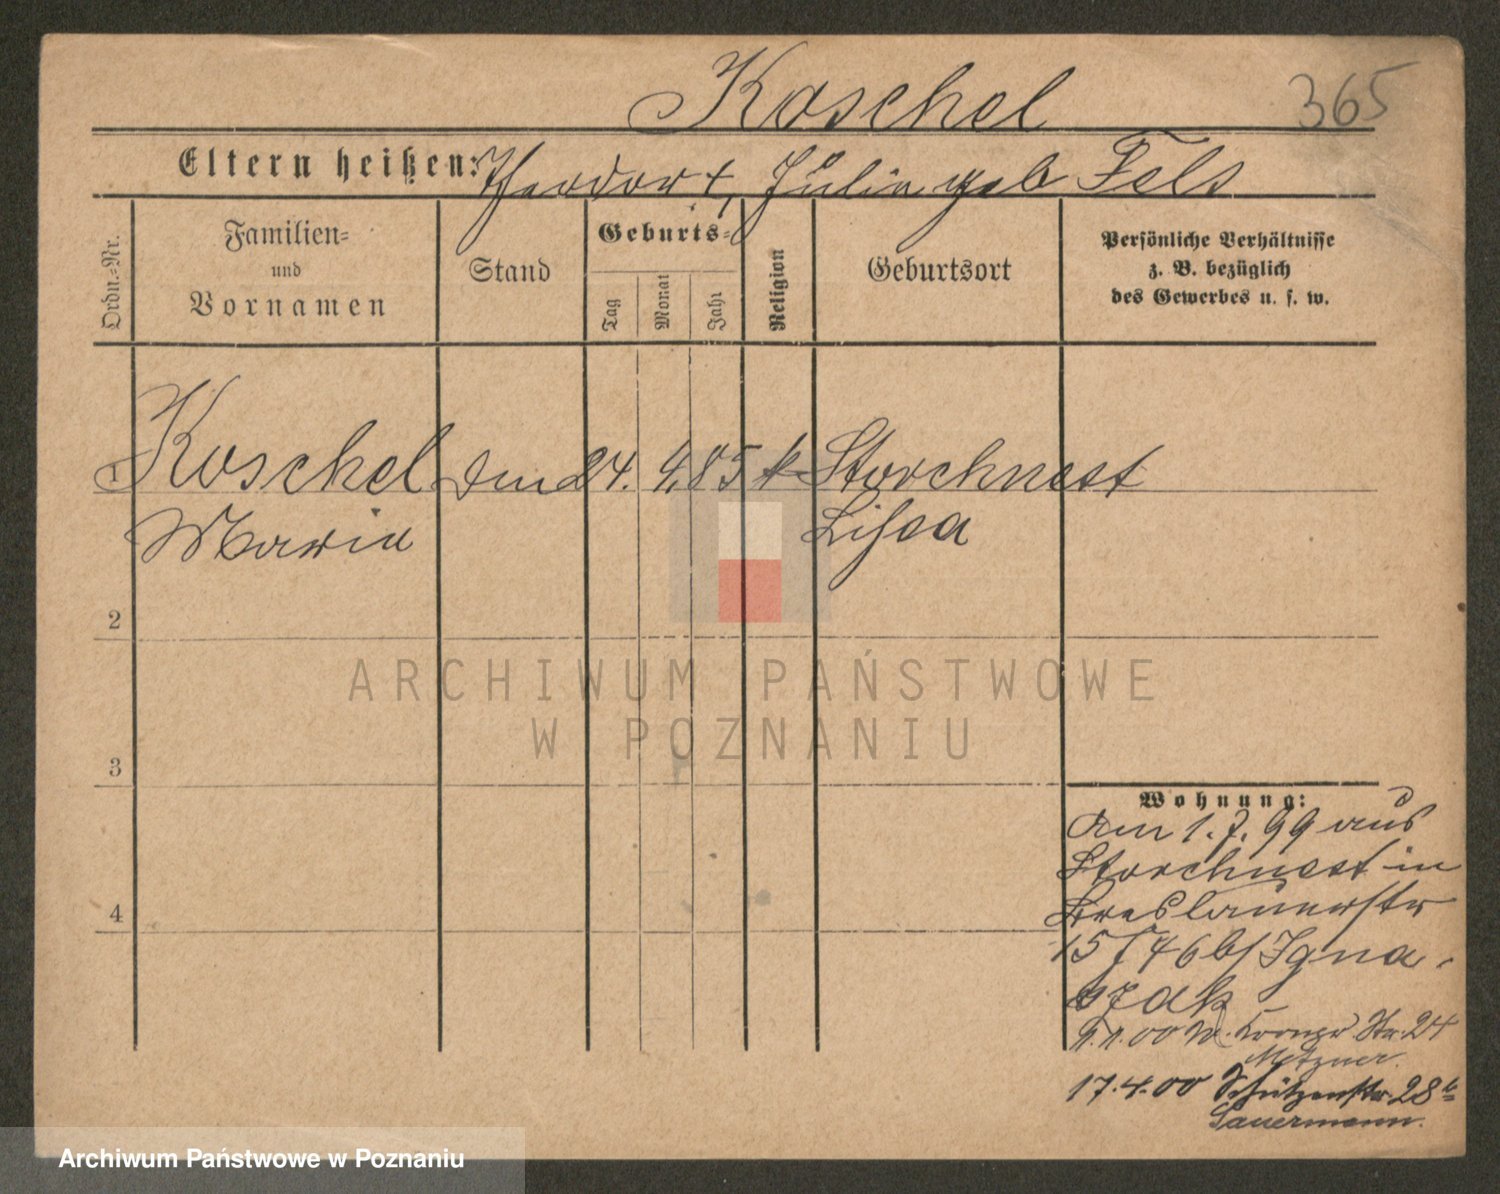 Koschel
365
Eltern heißen: Theodor †, Julie geb Fels
Ordn.=Nr.
Familien=
und
Vornamen
Stand
Geburts=
Tag
Monat
Jahr
Religion
Geburtsort
Persönliche Verhältnisse
z. B. bezüglich
des Gewerbes u. s. w.
1 Koschel 24. 4. 85 k Storchnest
Maria Lissa
2
3
4
Wohnung:
am 1. 7. 99 aus
Storchnest in
Breslauerstr
15/746 b/Igna-
szak
1.00 Kroner Str. 24
Metzner.
17.4.00 Schützenstr 28
Sauermann.
ARCHIWUM PAŃSTWOWE
W POZNANIU
Archiwum Państwowe w Poznaniu